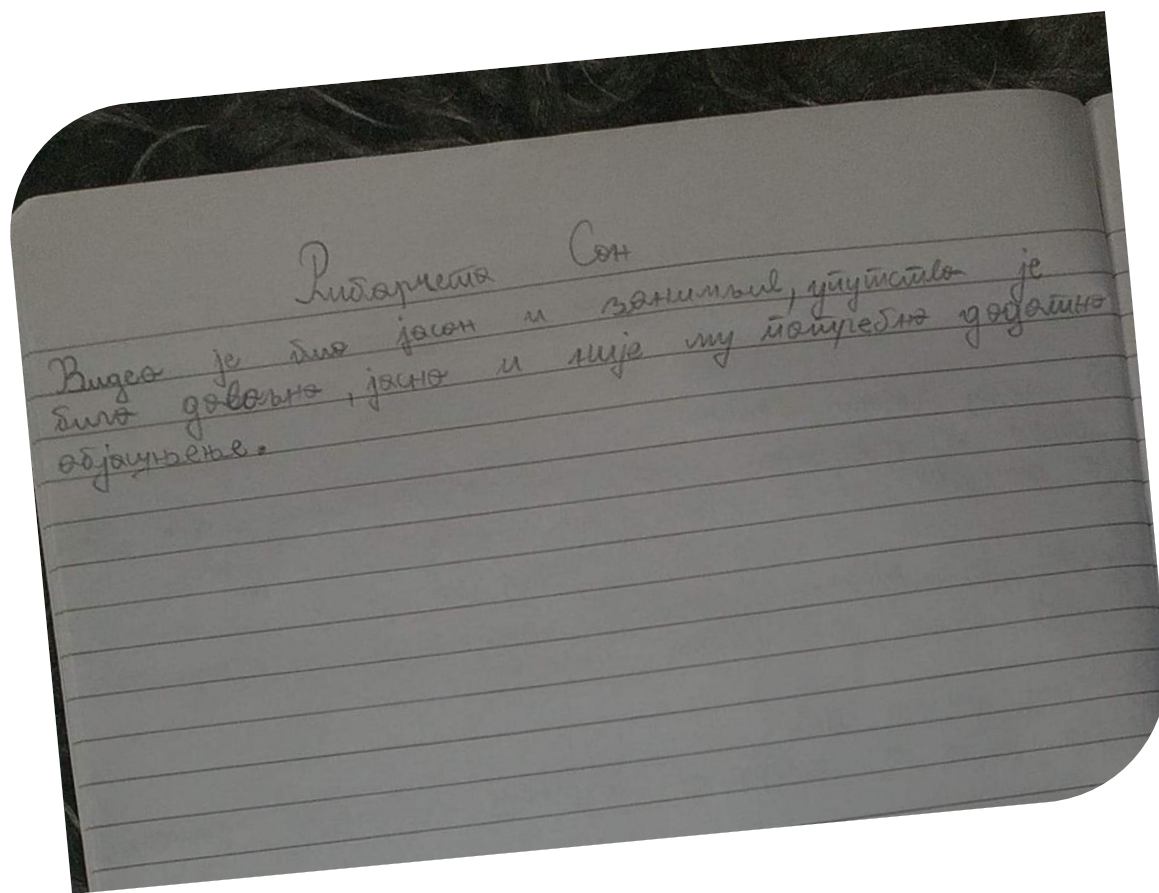 Рибарчета Сан
Видео је био јасан и занимљив, упутство је
било довољно, јасно и није му потребно додатно
објашњење.